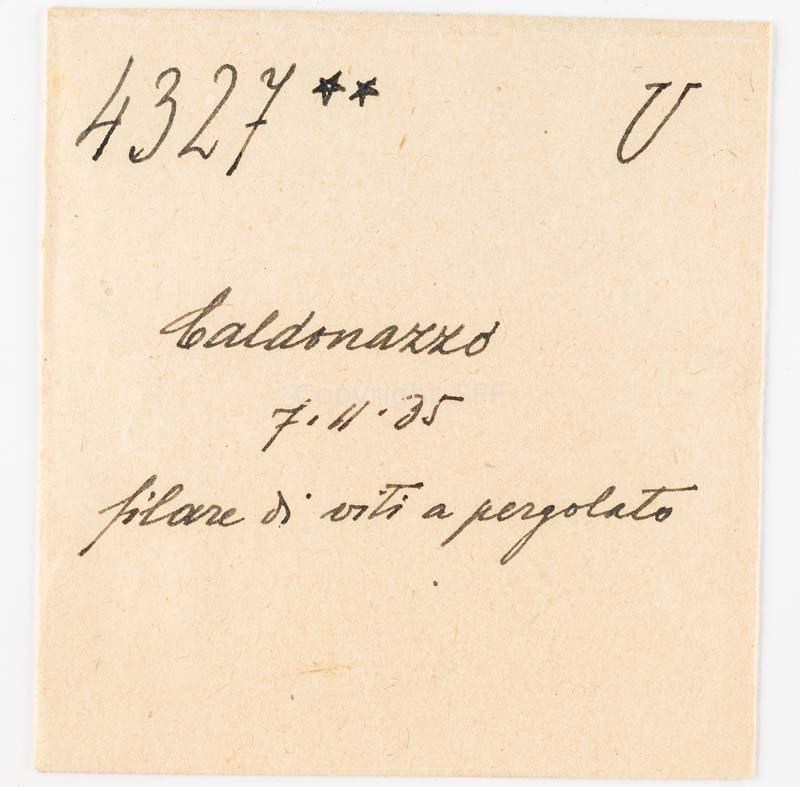 4327** U
Caldonazzo
7.11.35
filare di viti a pergolato